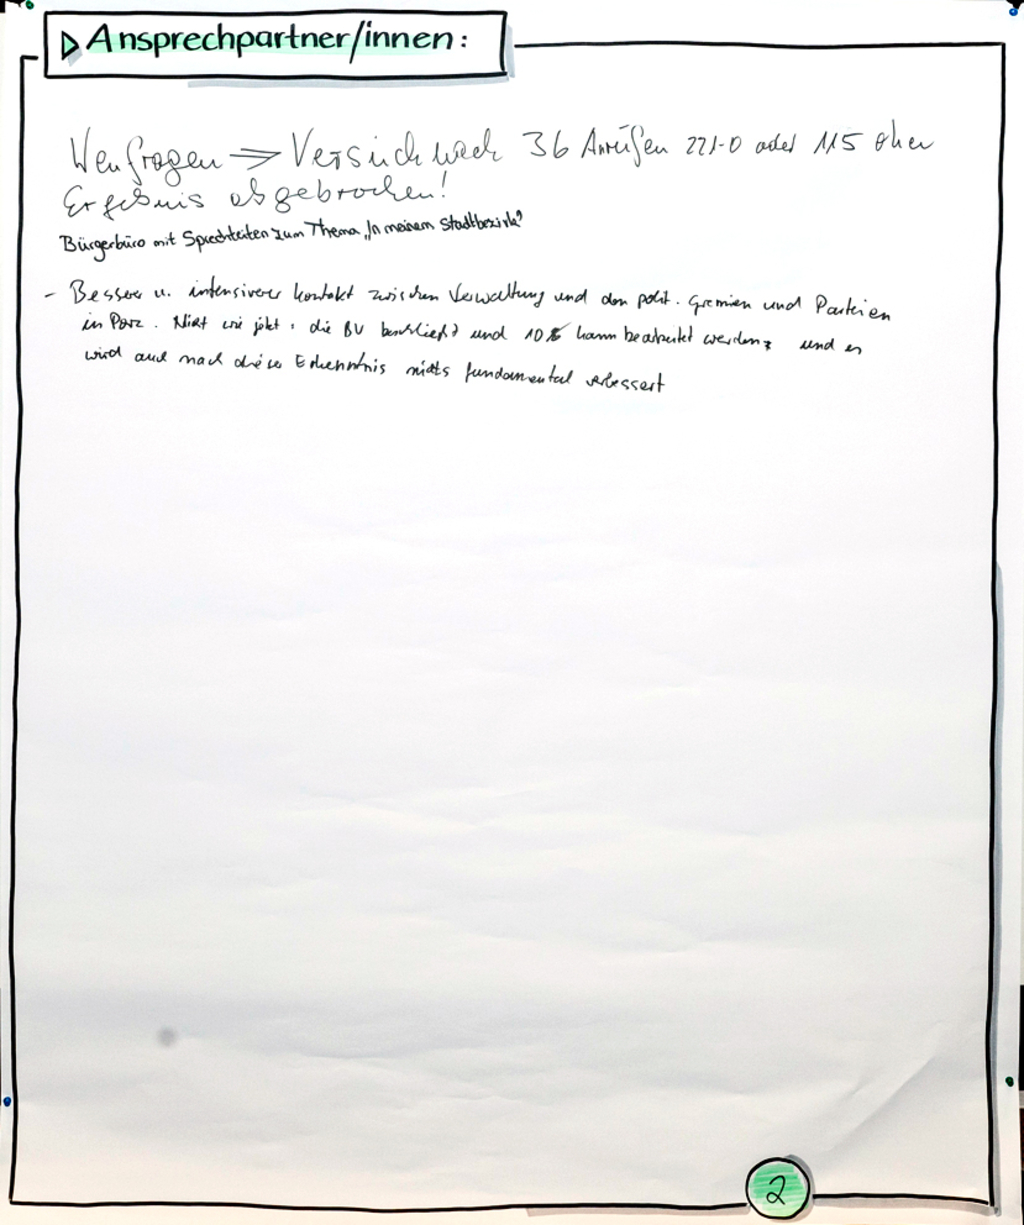 Ansprechpartner/innen:
Wen fragen => Versuch nach 36 Anrufen 221-0 oder 115 ohne
Ergebnis abgebrochen!
Bürgerbüro mit Sprechzeiten zum Thema „In meinem Stadtbezirk"
- Besserer u. intensiverer Kontakt zwischen Verwaltung und den polit. Gremien und Parteien
in Porz. Nicht wie jetzt: die BV beschließt und 10% kann bearbeitet werden und es
wird auch nach dieser Erkenntnis nichts fundamental verbessert
2